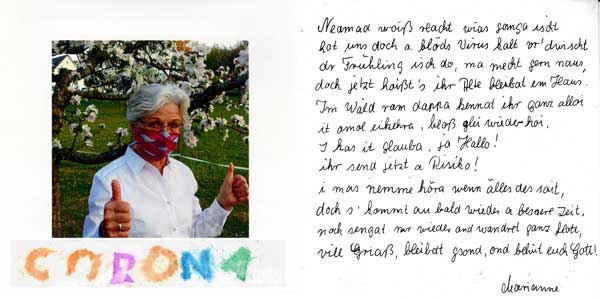 CORONA
Neamad woiß reacht wias ganga ischt
hat uns doch a blöds Virus kalt vr'dwischt
dr Frühling isch do, ma mecht gern naus,
doch jetzt hoißt's ihr Alte bleibat em Haus.
Im Wald ram dappa kennat ihr ganz alloi
it amol eikehra, bloß glei wieder hoi.
I kas it glauba, ja Hallo!
ihr send jetzt a Risiko!
i mas nemme höra wenn älles des sait,
doch s' kommt au bald wieder a bessere Zeit,
noch sengat mr wieder and wandret ganz flott,
viele Griaß, bleibat gsond, ond behüt euch Gott!
Marianne